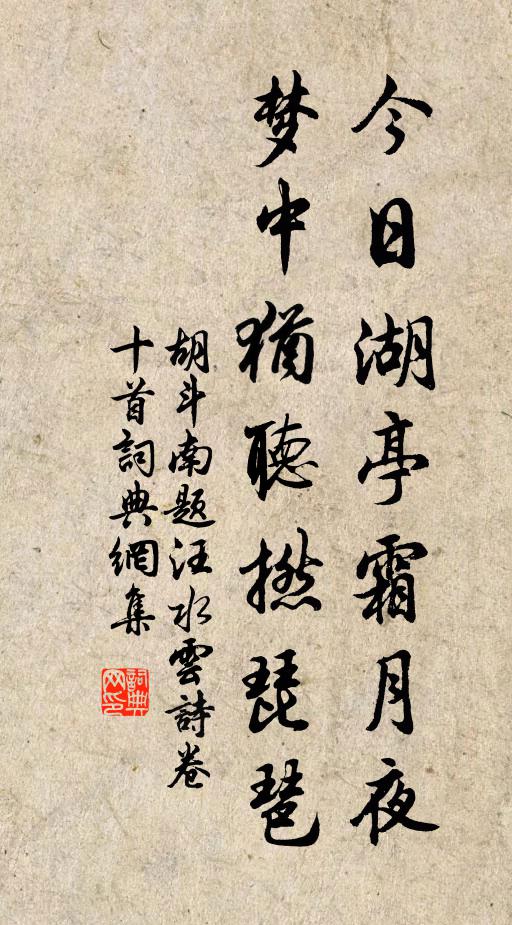 今日湖亭霜月夜
梦中猶聽撚琵琶
胡斗南题汪水雲詩卷
十首詞典網集
詞典
网印